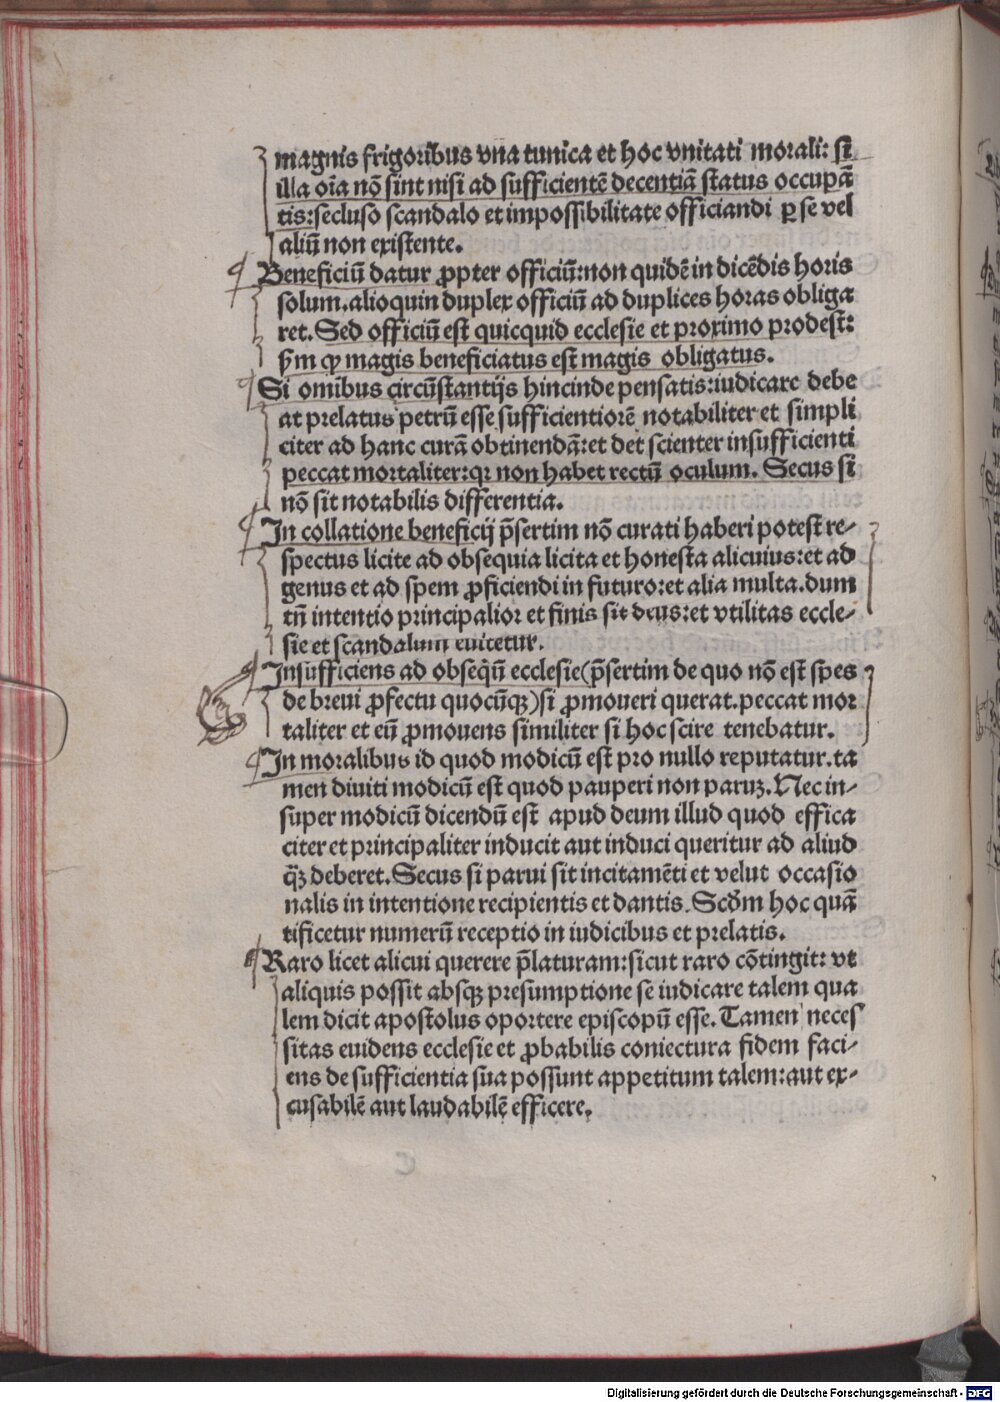 magnis frigoribus vna tunica et hoc vnitati morali: si
illa oīa nō sint nisi ad sufficientē decentiā status occupā
tis: secluso scandalo et impossibilitate officiandi ꝑ se vel
aliū non existente.
Beneficiū datur ꝓpter officiū: non quidē in dicēdis horis
solum. alioquin duplex officiū ad duplices horas obliga
ret. Sed officiū est quicquid ecclesie et proximo prodest:
ẜm ꝙ magis beneficiatus est magis obligatus.
Si omībus circūstantijs hincinde pensatis: iudicare debe
at prelatus petrū esse sufficientiorē notabiliter et simpli
citer ad hanc curā obtinendā: et det scienter insufficienti
peccat mortaliter: qꝛ non habet rectū oculum. Secus si
nō sit notabilis differentia.
In collatione beneficij p̄sertim nō curati haberi potest re-
spectus licite ad obsequia licita et honesta alicuius: et ad
genus et ad spem ꝓficiendi in futuro: et alia multa. dum
tn̄ intentio principalior et finis sit deus: et vtilitas eccle-
sie et scandalum euitetur.
Insufficiens ad obseq̄ū ecclesie (p̄sertim de quo nō est spes
de breui ꝓfectu quocūqꝫ) si ꝓmoueri querat. peccat mor
taliter et eū ꝓmouens similiter si hoc scire tenebatur.
In moralibus id quod modicū est pro nullo reputatur. ta
men diuiti modicū est quod pauperi non paruꝫ. Nec in-
super modicū dicendū est apud deum illud quod effica
citer et principaliter inducit aut induci queritur ad aliud
q̄ꝫ deberet. Secus si parui sit incitamēti et velut occasio
nalis in intentione recipientis et dantis. Scḋm hoc quā
tificetur numerū receptio in iudicibus et prelatis.
Raro licet alicui querere p̄laturam: sicut raro cōtingit: vt
aliquis possit absqꝫ presumptione se iudicare talem qua
lem dicit apostolus oportere episcopū esse. Tamen neces
sitas euidens ecclesie et ꝓbabilis coniectura fidem faci-
ens de sufficientia sua possunt appetitum talem: aut ex-
cusabilē aut laudabilē efficere.
Digitalisierung gefördert durch die Deutsche Forschungsgemeinschaft - DFG